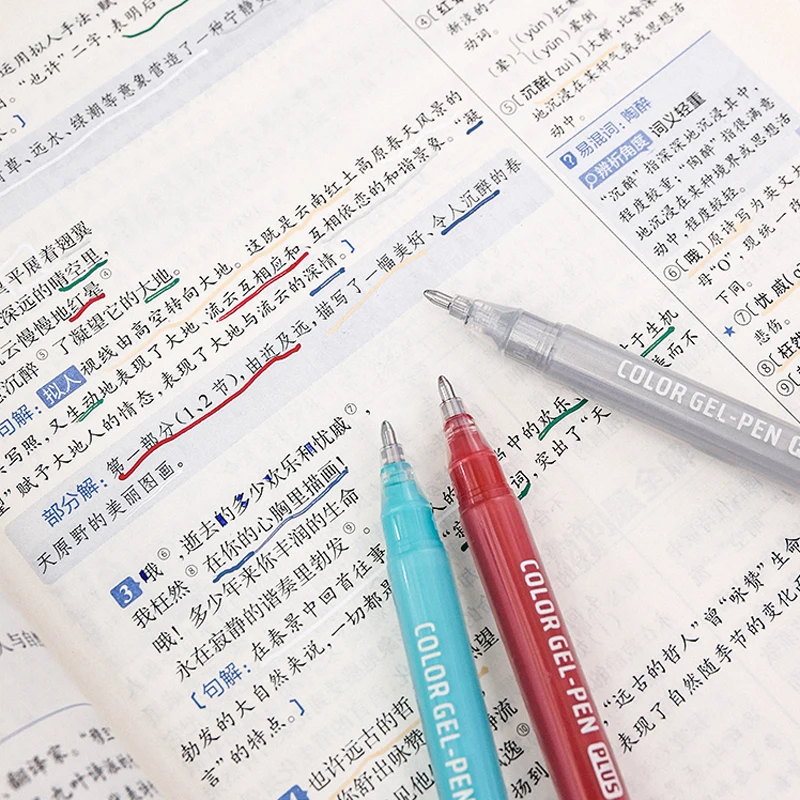 运用拟人手法，赋
。“也许”二字，表明后
草、远水、绿潮等意象营造了一种宁静
】
平展着翅翼
深远的晴空里，
云慢慢地红晕④
沉醉⑤了凝望它的大地。
句解：拟人 视线由高空转向大地。这既是云南红土高原春天风景的
写照，又生动地表现了大地、流云互相应和、互相依恋的和谐景象。“凝
”赋予大地人的情态，表现了大地与流云的深情。】
部分解：第一部分（1、2节），由近及远，描写了一幅美好、令人沉醉的春
天原野的美丽图画。
3 哦⑥，逝去的多少欢乐和忧戚⑦，
我枉然⑧在你的心胸里描画！
哦！多少年来你丰润的生命
永在寂静的谐奏里勃发⑨。
【句解：在春景中回首往事
勃发的大自然来说，一切都
言”的特点。】
也许远古的哲
你舒出咏赞
于生机
美而不
当中的欢乐、
词，突出了“天
“远古的哲人”曾“咏赞”生命
表现了自然随季节的变化
渐淡的
动词。
(yùn)红
晕
(yūn)晕倒
⑤〔沉醉(zuì)〕大醉，比喻深
地沉浸在某种气氛或思想活
动中。
易混词：陶醉
辨析角度 词义轻重
“沉醉”指深深地沉浸其中，
程度较重；“陶醉”指很满意
地沉浸在某种境界或思想活
动中，程度较轻。
⑥〔哦〕原诗写为英文
母“O”，现统一
下同。
⑦〔忧戚(
悲伤。
⑧〔枉然
⑨〔
翻译家。
COLOR GEL-PEN
COLOR GEL-PEN PLUS
COLOR GEL-PEN